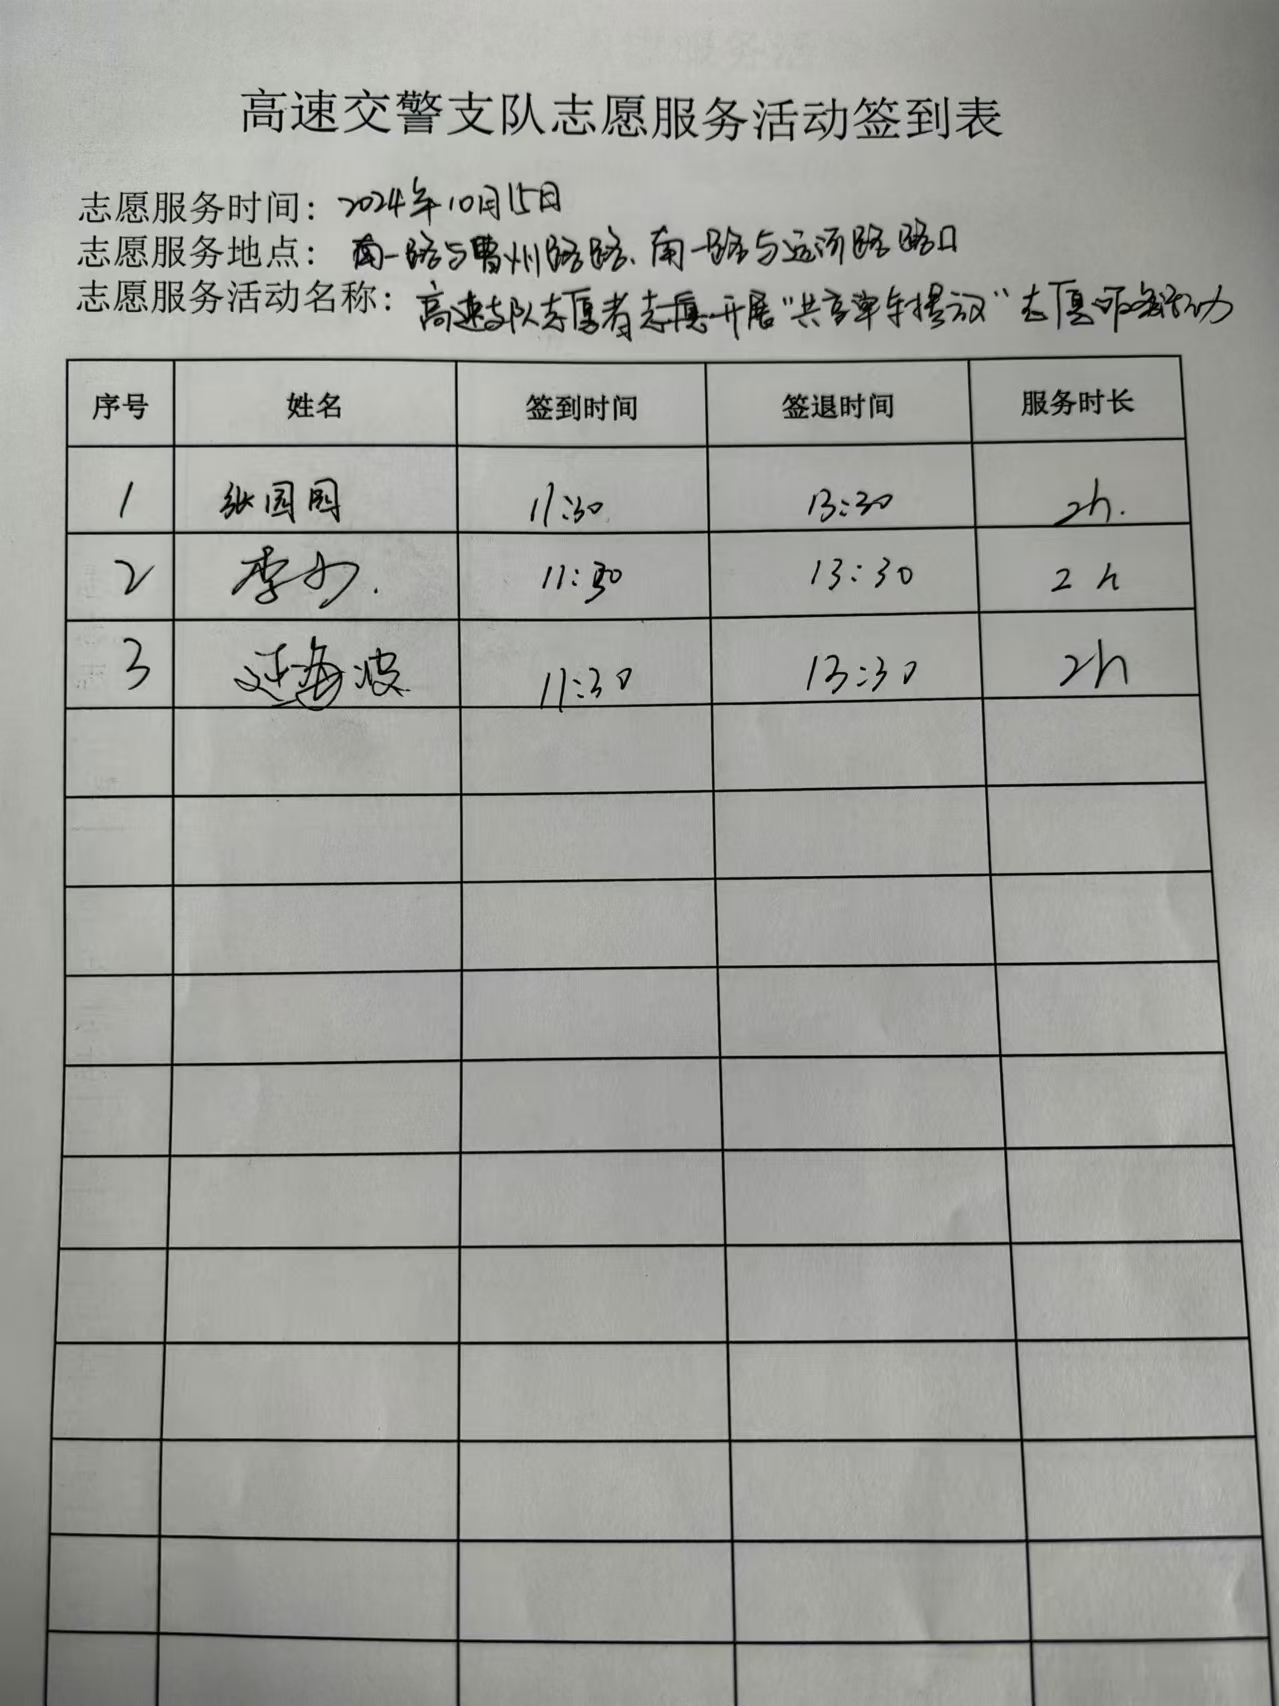 高速交警支队志愿服务活动签到表
志愿服务时间：2024年10月15日
志愿服务地点：南一路与曹州路路、南一路与运河路路口
志愿服务活动名称：高速支队志愿者志愿开展“共享单车摆放”志愿服务活动
序号 姓名 签到时间 签退时间 服务时长
1 张园园 11:30 13:30 2h.
2 李 11:30 13:30 2h
3 延海波 11:30 13:30 2h